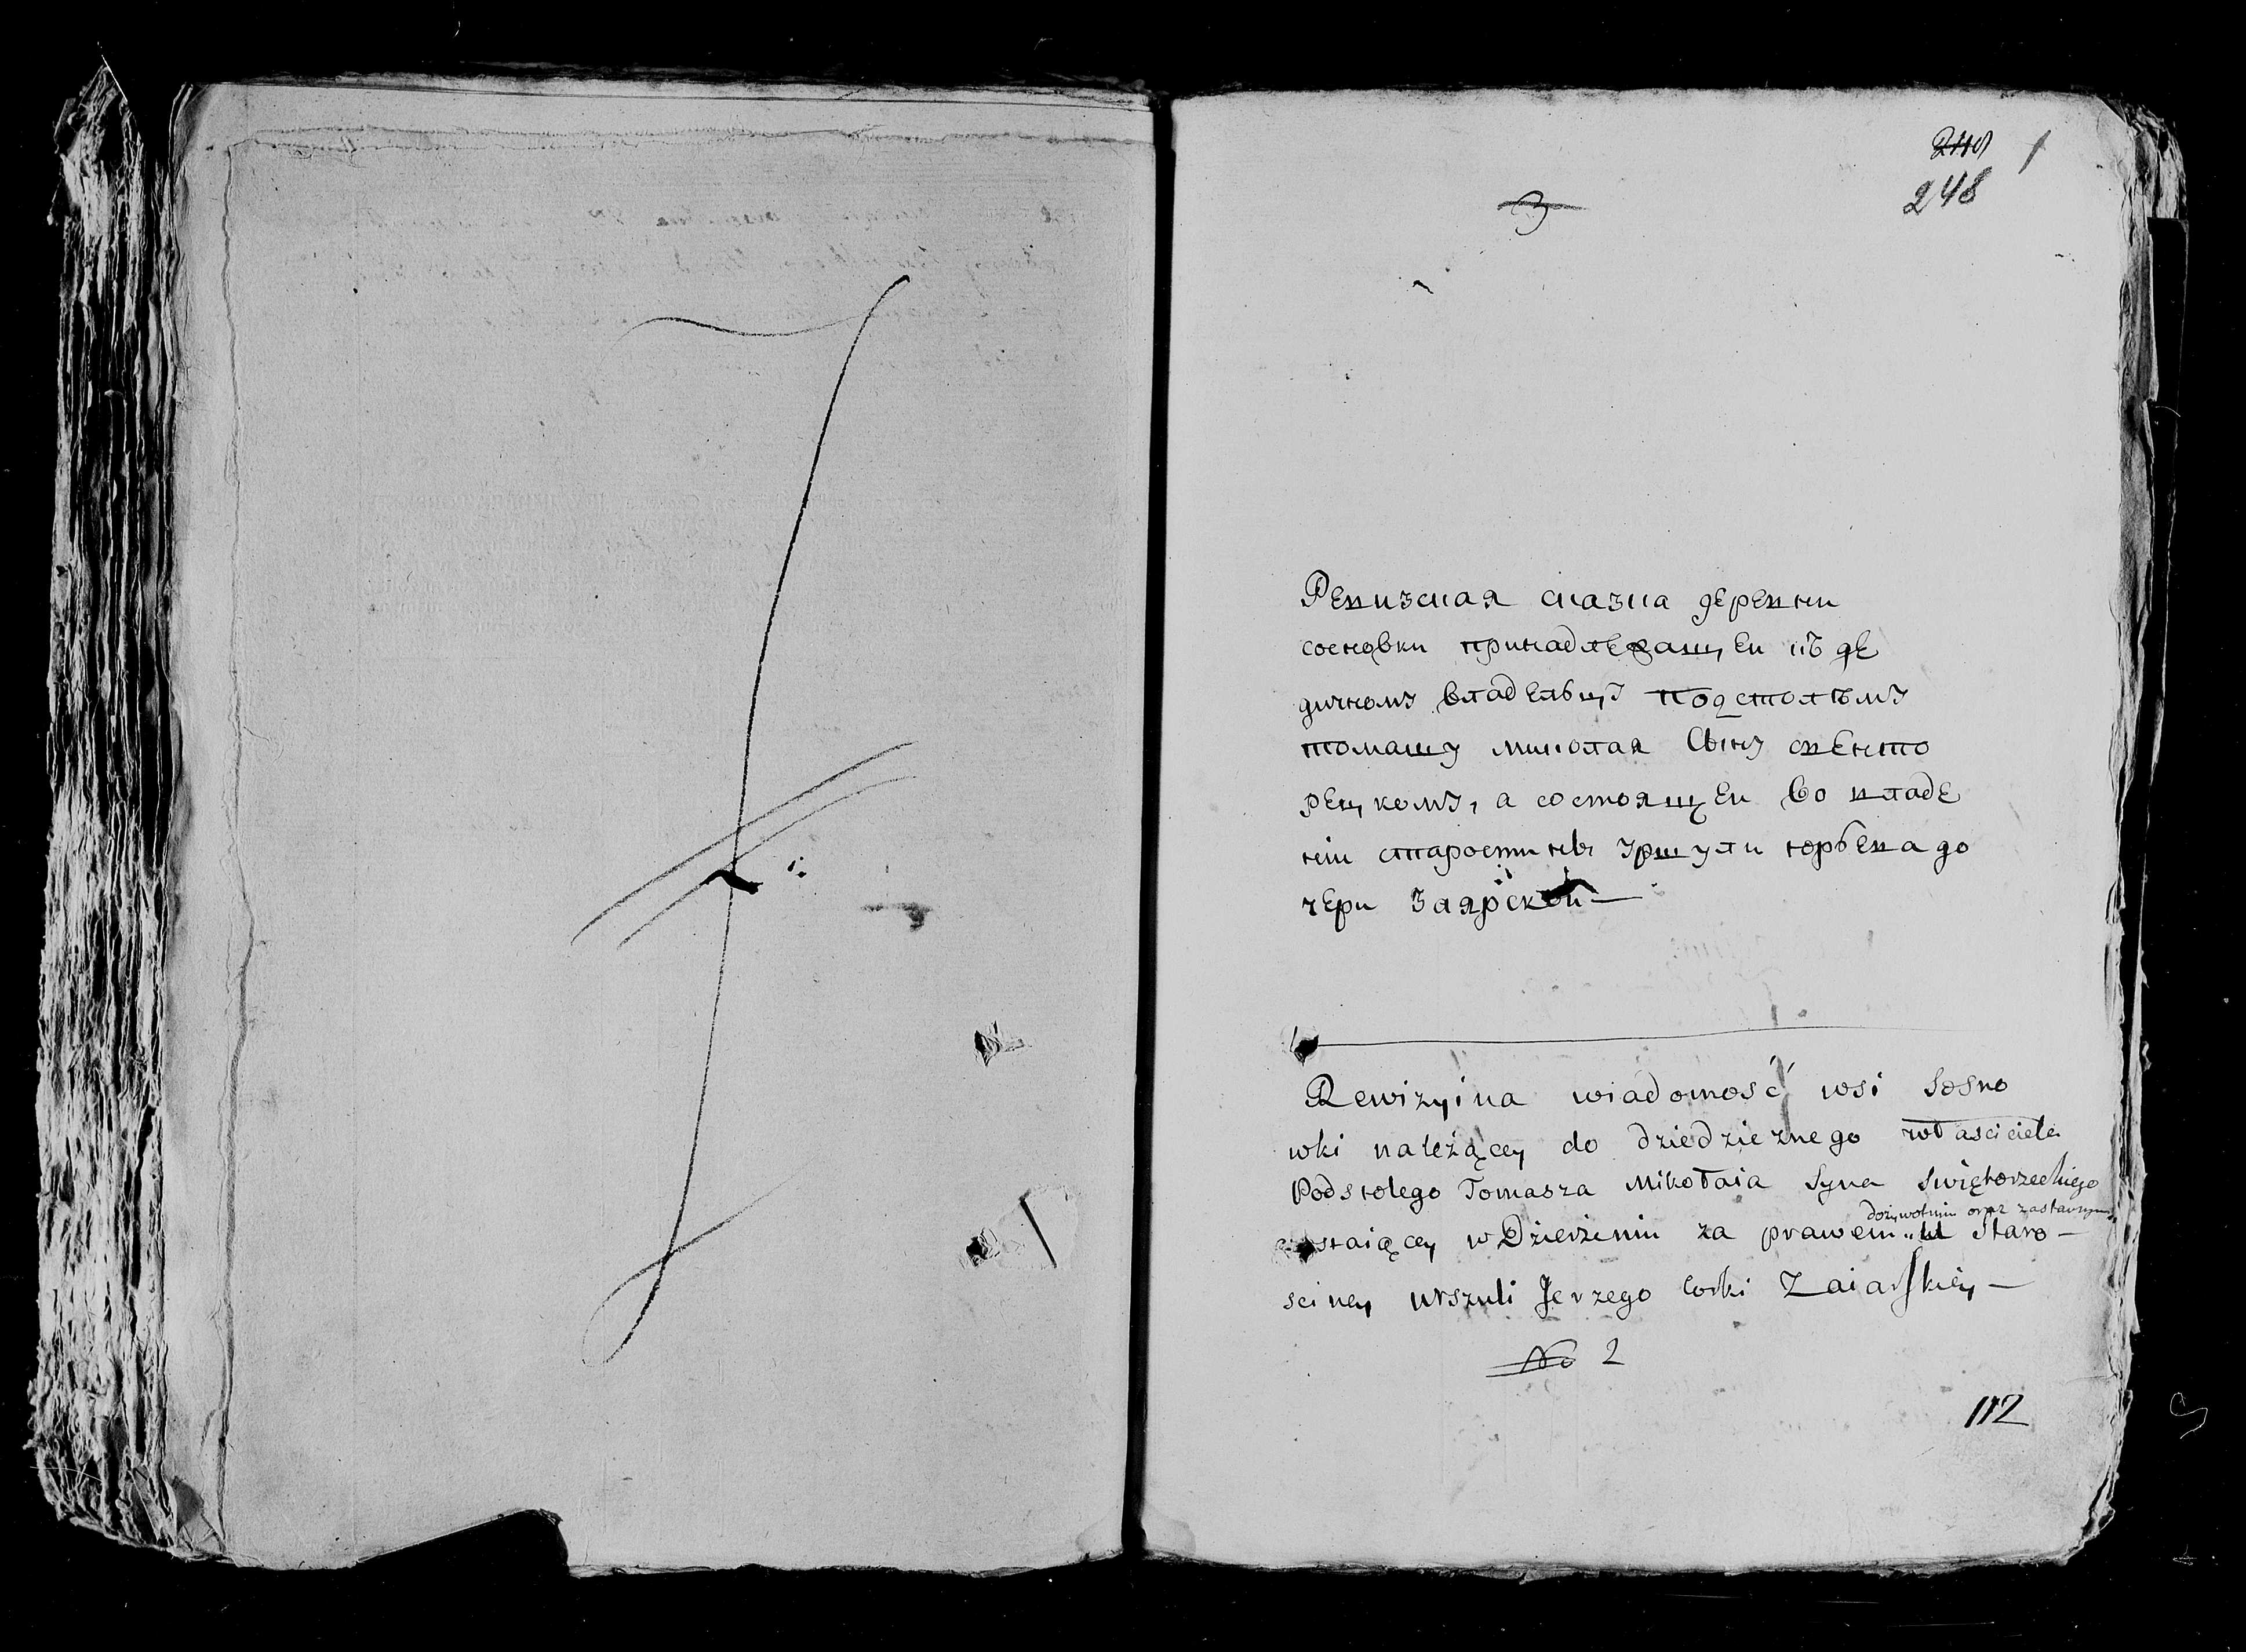 1
248
3
Ревизская сказка деревни
сосновки принадлежащеи нѣ де
дичному владельцу подстольому
томашу миколая сыну свенто
рецкому, а состоящеи во владе
нiи старостины уршули юрьева до
чери Заярской —
Rewizyina wiadomość wsi Sosno
wki należącey do dziedzicznego własciciela
Podstolego Tomasza Mikołaia Syna Swiętorzeckiego
dożywotnim oraz zastawnym
zostaiącey w Dzierżeniu za prawem Staro-
sciney Urszuli Jerzego Corki Zaiarskiey —
No 2
112